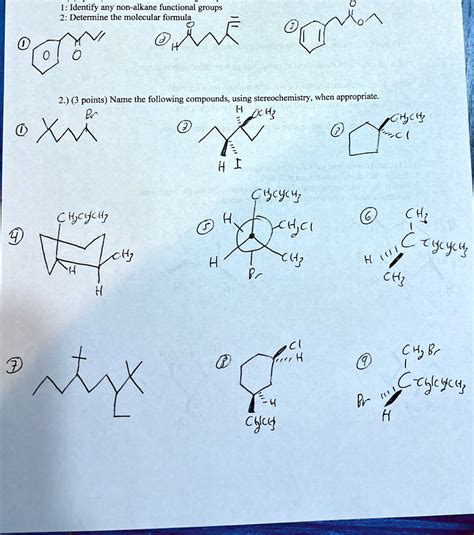 1: Identify any non-alkane functional groups
2: Determine the molecular formula
O
O
1
O
2
H
3
O
2.) (3 points) Name the following compounds, using stereochemistry, when appropriate.
1
Br
2
H
OCH3
H I
3
CH2CH3
Cl
4
CH2CH2CH3
CH3
H
H
5
CH2CH2CH3
H
CH2Cl
H
CH3
Br
6
CH3
C
H
CH3
7
8
Cl
H
H
9
CH2Br
Br
H